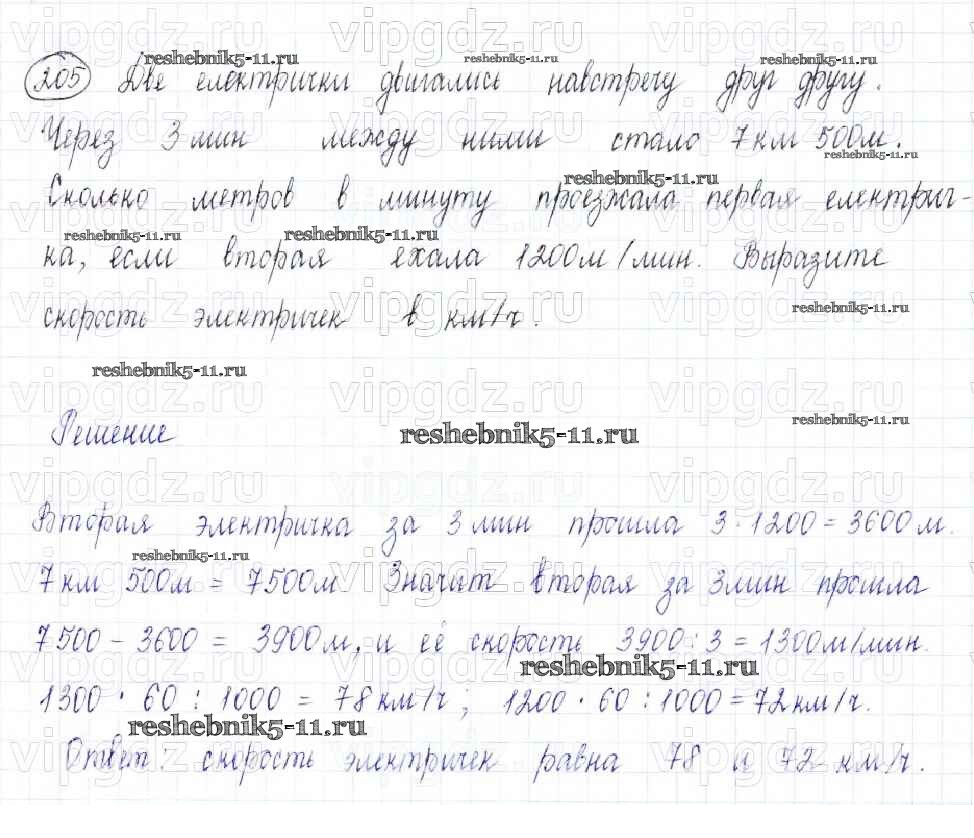 205 Две електрички двигались навстречу друг другу.
Через 3 мин между ними стало 7 км 500 м.
Сколько метров в минуту проезжала первая електрич-
ка, если вторая ехала 1200 м/мин. Выразите
скорость электричек в км/ч.
Решение
Вторая электричка за 3 мин прошла 3 · 1200 = 3600 м.
7 км 500 м = 7500 м Значит вторая за 3 мин прошла
7500 - 3600 = 3900 м, и её скорость 3900 : 3 = 1300 м/мин.
1300 · 60 : 1000 = 78 км/ч ; 1200 · 60 : 1000 = 72 км/ч.
Ответ: скорость электричек равна 78 и 72 км/ч.
reshebnik5-11.ru
vipgdz.ru